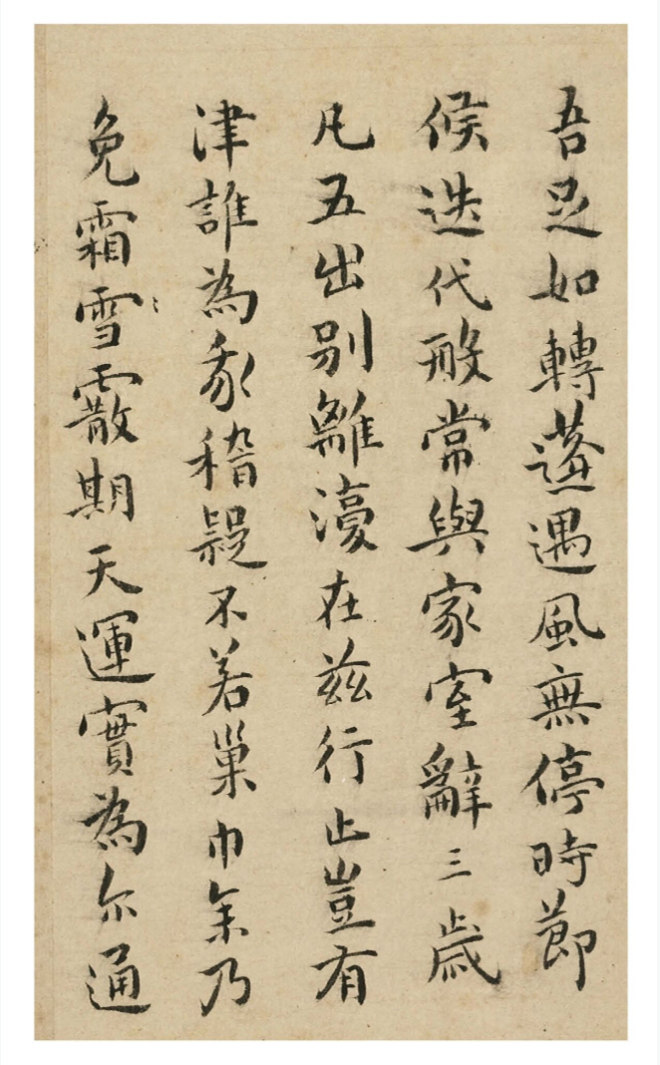 吾足如轉蓬遇風無停時節
候迭代般常與家室辭三歲
凡五出別離濅在茲行止豈有
津誰為豖稽疑不若巢巾車乃
免霜雪霰期天運實為尔通